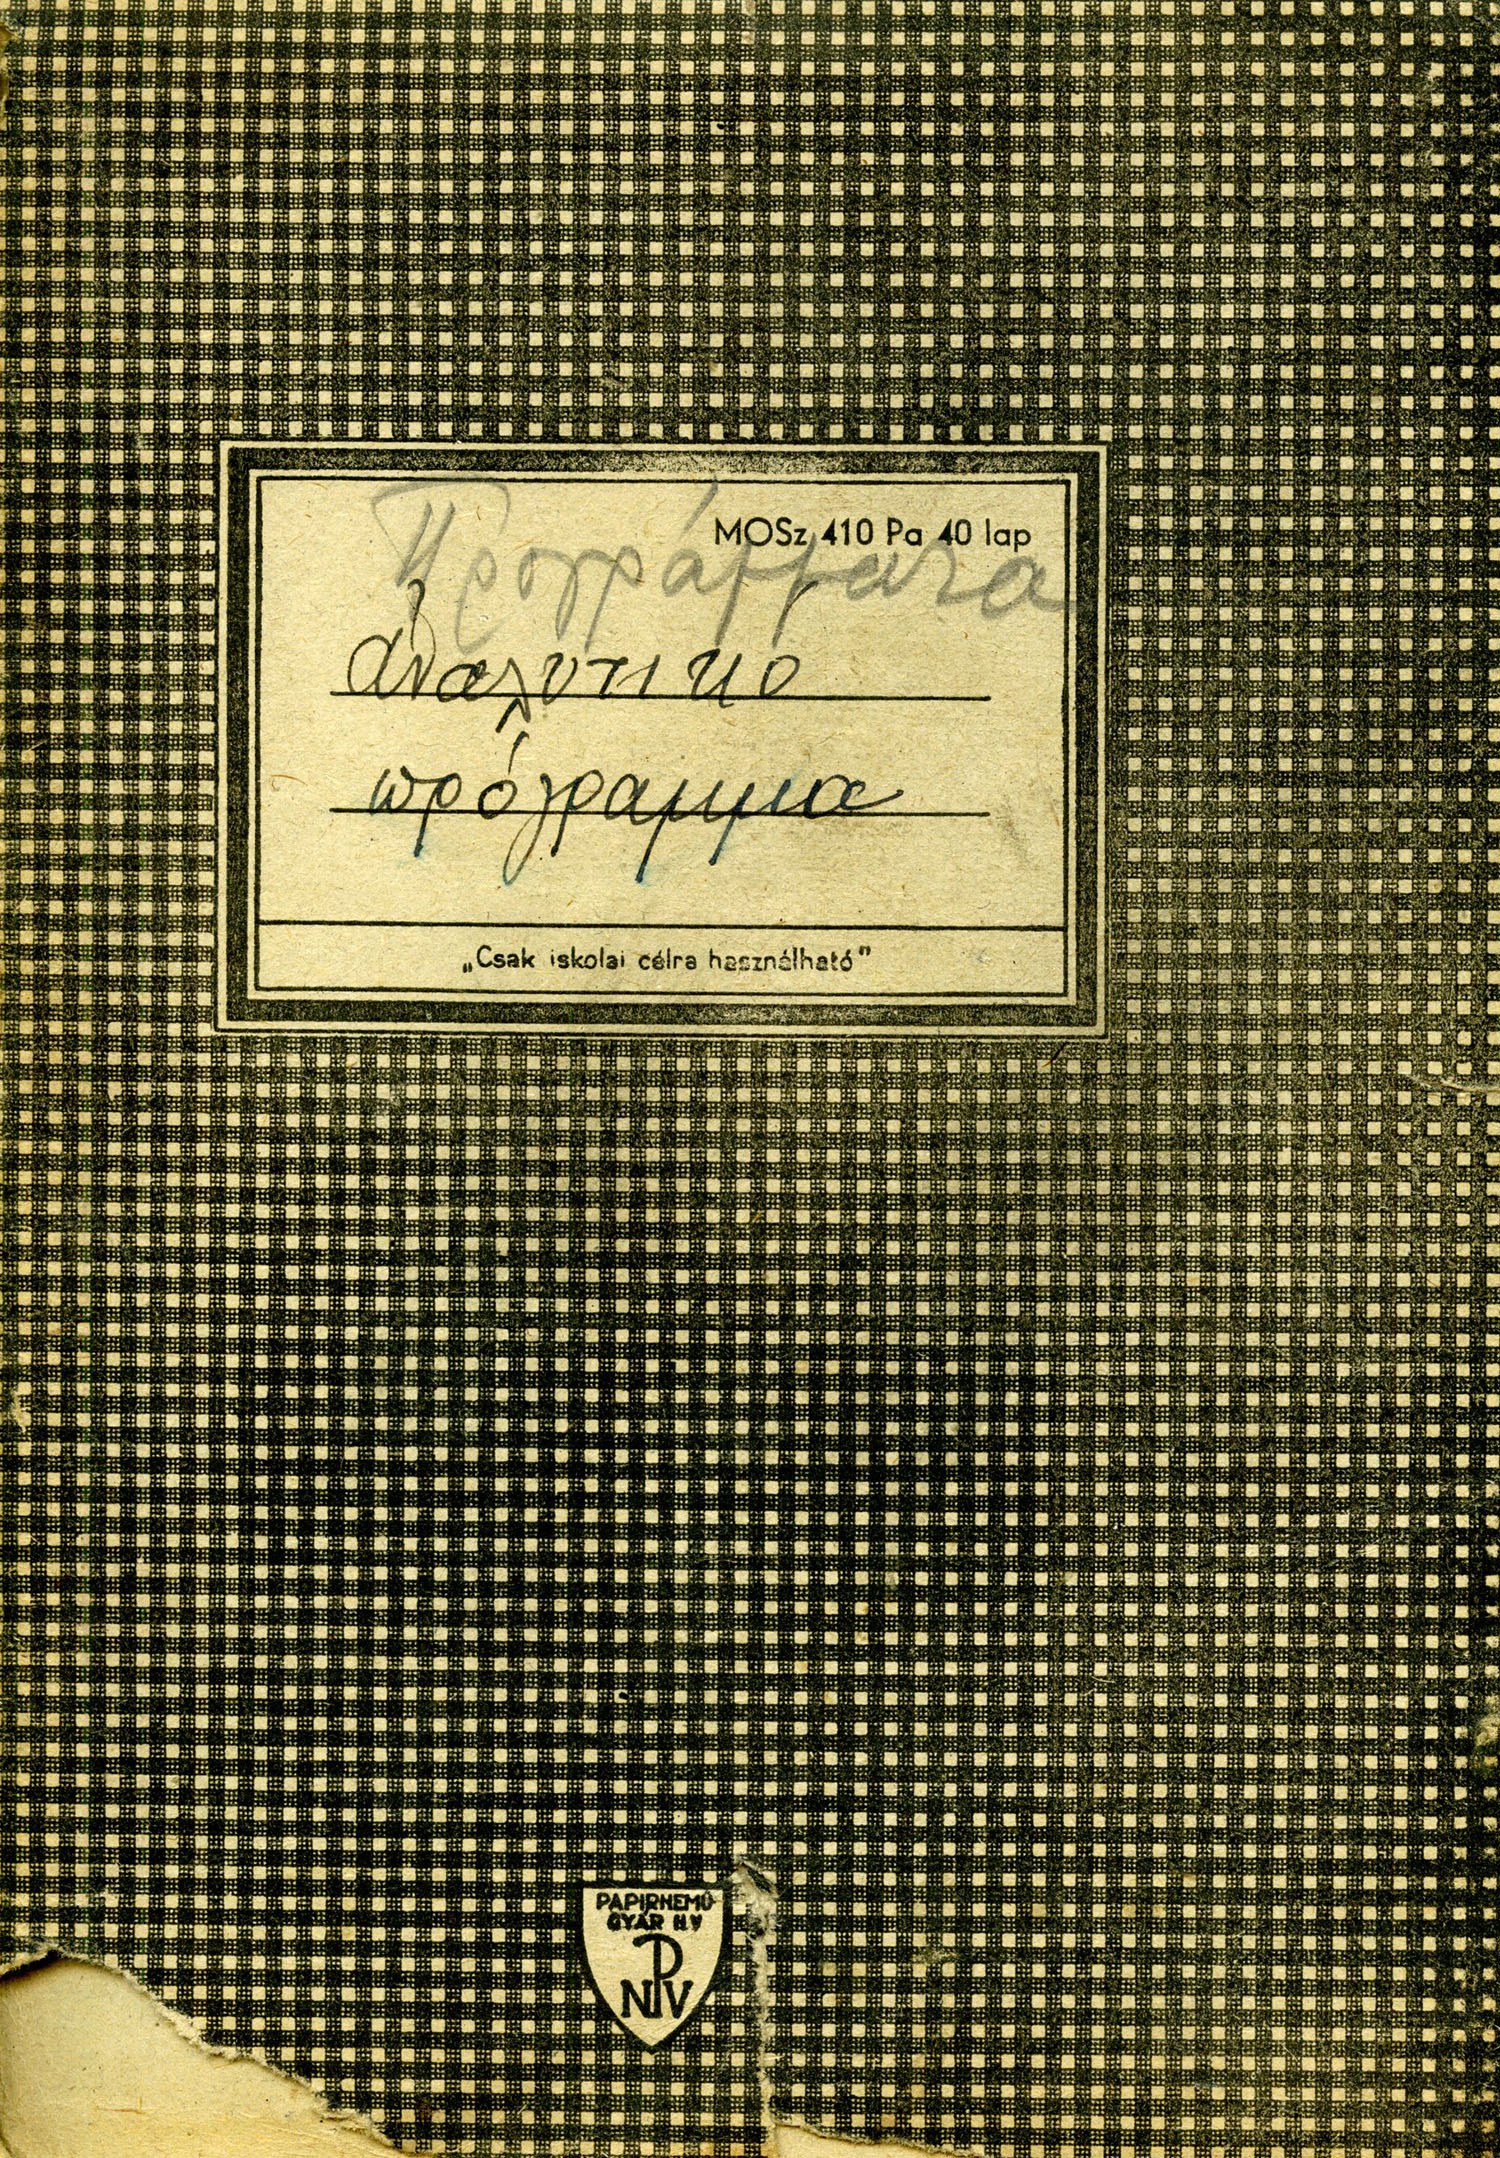 MOSz 410 Pa 40 lap
Προγράμματα
ἀναλυτικο
πρόγραμμα
„Csak iskolai célra használható”
PAPIRNEMŰ
GYÁR N.V
NPV